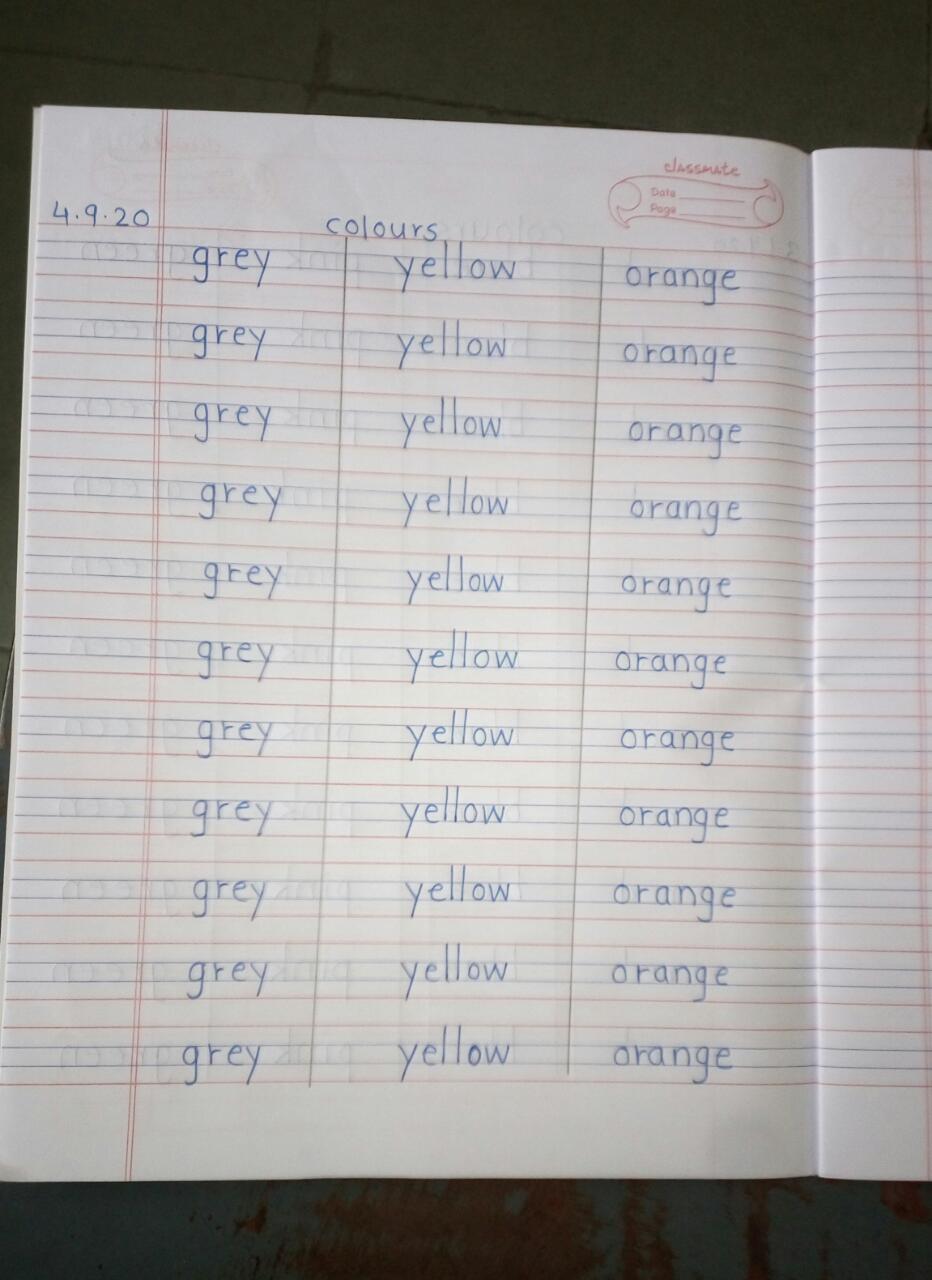 classmate
Date
Page
4.9.20 colours
grey yellow orange
grey yellow orange
grey yellow orange
grey yellow orange
grey yellow orange
grey yellow orange
grey yellow orange
grey yellow orange
grey yellow orange
grey yellow orange
grey yellow orange